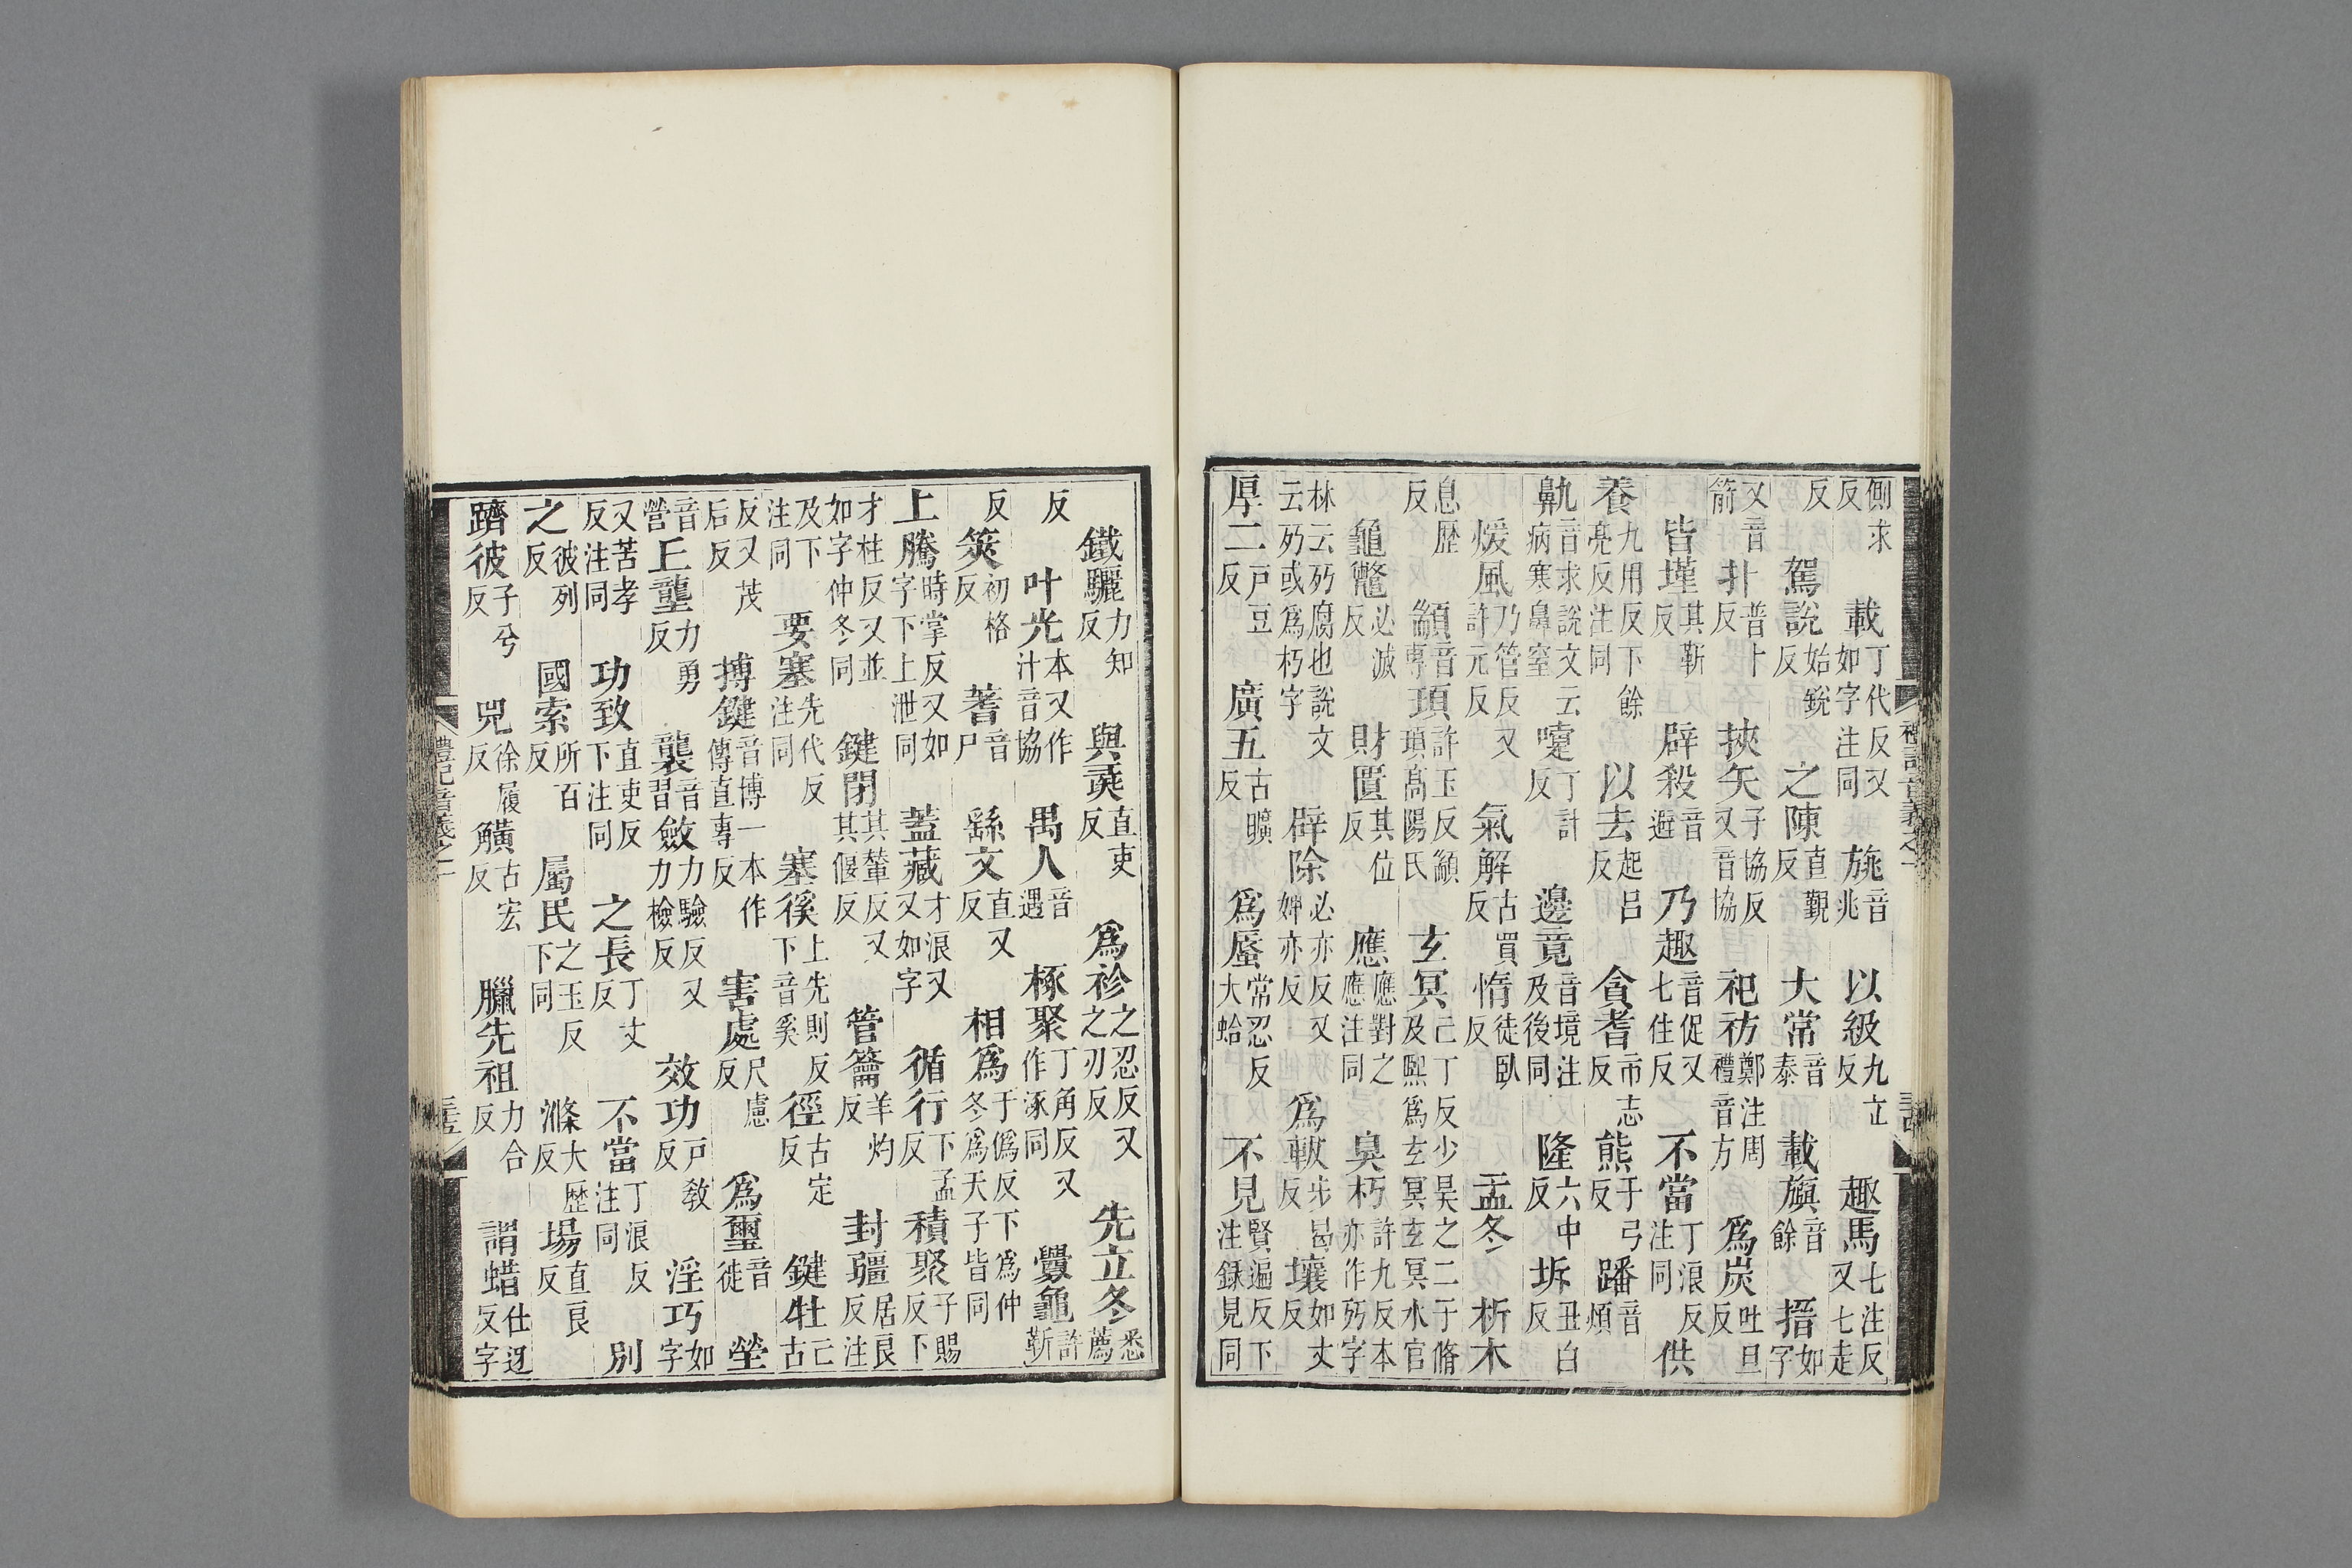 側求反 載丁代反又如字注同 旐音兆 以級九立反 趣馬七注反又七走
反 駕說始銳反 之陳直覲反 大常音泰 載旟音餘 搢如字
又音箭 扑普卜反 挾矢子協反又音協 祀祊鄭注周禮音方 爲炭吐旦反
皆墐其靳反 辟殺音避 乃趣音促又七住反 不當丁浪反注同 供
養九用反下餘亮反注同 以去起呂反 貪耆市志反 熊于弓反 蹯音煩
鼽音求說文云病寒鼻窒 嚔丁計反 邊竟音境注及後同 隆六中反 坼丑白反
煖風乃管反又許元反 氣解古買反 惰徒臥反 孟冬 析木
息歷反 顓音專 頊許玉反顓頊高陽氏 玄冥亡丁反少昊之二子脩及熙爲玄冥玄冥水官
龜鼈必滅反 財匱其位反 應應對之應注同 臭朽許九反本亦作歹字
林云歹腐也說文云歹或爲朽字 辟除必亦反又婢亦反 爲軷步曷反 壤如丈反
厚二戸豆反 廣五古曠反 爲蜃常忍反大蛤 不見賢遍反下注録見同
禮記音義之一 三四
鐵驪力知反 與彘直吏反 爲袗之忍反又之刃反 先立冬悉薦
反 叶光本又作汁音協 禺人音遇 椓聚丁角反又作涿同 釁龜許靳
反 筴初格反 蓍音尸 繇文直又反 相爲于僞反下爲仲冬爲天子皆同
上騰時掌反又如字下上泄同 蓋藏才浪又又如字 循行下孟反 積聚子賜反下
才柱反又並如字仲冬同 鍵閉其輦反又其偃反 管籥羊灼反 封疆居良反注
及下注同 要塞先代反注同 塞徯上先則反下音奚 徑古定反 鍵牡亡古
反又茂后反 搏鍵音博一本作傳直專反 害處尺慮反 爲璽音徙 塋
音營 丘壟力勇反 襲音習 斂力驗反又力檢反 效功戸教反 淫巧如字
又苦孝反注同 功致直吏反下注同 之長丁丈反 不當丁浪反注同 別
之彼列反 國索所百反 屬民之玉反下同 滌大歷反 場直良反
躋彼子兮反 兕徐履反 觵古宏反 臘先祖力合反 謂蜡仕迓反字
禮記音義之一 三五